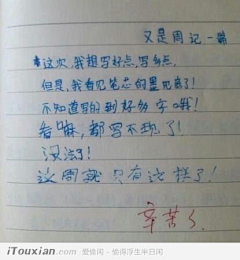 又是周记一篇
这次,我想写好点,写多点.
但是,我看见笔芯的墨见底了!
不知道写的到好多字哦!
看嘛,都写不现了!
没法了!
这周就只有这样了!
辛苦了
iTouxian.com 爱偷闲 - 偷得浮生半日闲